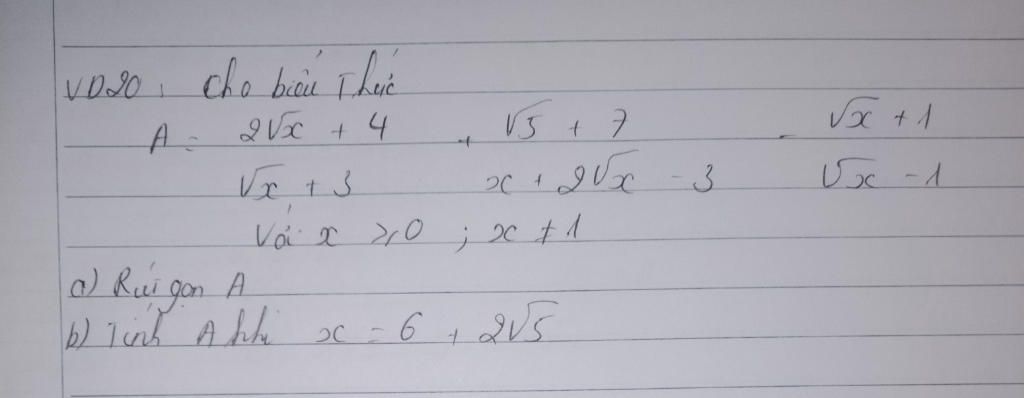 VD20: Cho biểu Thức
A = 2√x + 4 / √x + 3 + √5 + 7 / x + 2√x - 3 - √x + 1 / √x - 1
Với x ⩾ 0 ; x ≠ 1
a) Rút gọn A
b) Tính A khi x = 6 + 2√5